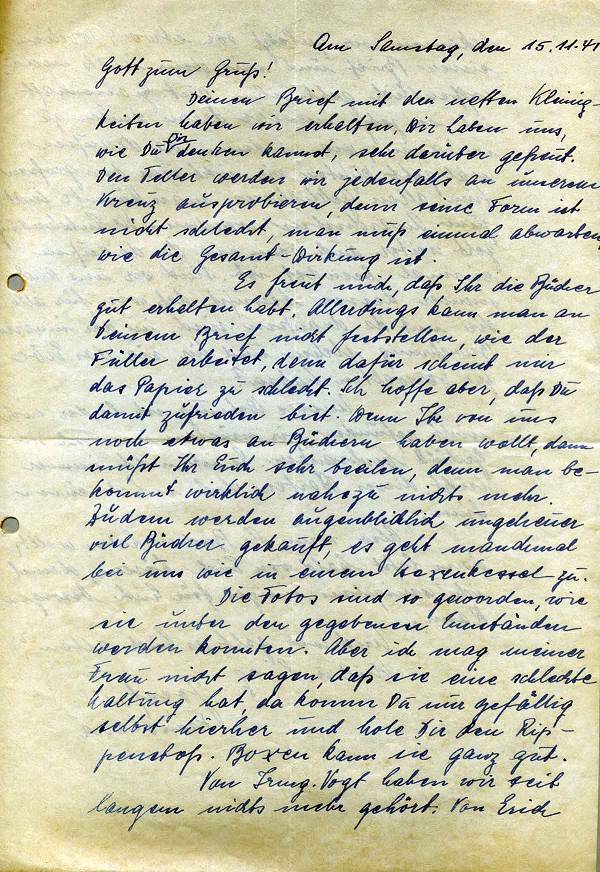 Am Samstag, den 15.11.41
Gott zum Gruß!
Deinen Brief mit den netten Kleinig-
keiten haben wir erhalten. Wir haben uns,
wie Du Dir denken kannst, sehr darüber gefreut.
Den Teller werden wir jedenfalls an unserem
Kreuz ausprobieren, denn seine Form ist
nicht schlecht, man muß einmal abwarten,
wie die Gesamt-Wirkung ist.
Es freut mich, daß Ihr die Bücher
gut erhalten habt. Allerdings kann man an
Deinem Brief nicht feststellen, wie der
Füller arbeitet, denn dafür scheint mir
das Papier zu schlecht. Ich hoffe aber, daß Du
damit zufrieden bist. Wenn Ihr von uns
noch etwas an Büchern haben wollt, dann
müßt Ihr Euch sehr beeilen, denn man be-
kommt wirklich nahezu nichts mehr.
Zudem werden augenblicklich ungeheuer
viel Bücher gekauft, es geht manchmal
bei uns wie in einem Hexenkessel zu.
Die Fotos sind so geworden, wie
sie unter den gegebenen Umständen
werden konnten. Aber ich mag meiner
Frau nicht sagen, daß sie eine schlechte
Haltung hat, da komm Du nur gefällig
selbst hierher und hole Dir den Rip-
penstoß. Boxen kann sie ganz gut.
Von Irmg. Vogt haben wir seit
langem nichts mehr gehört. Von Erich